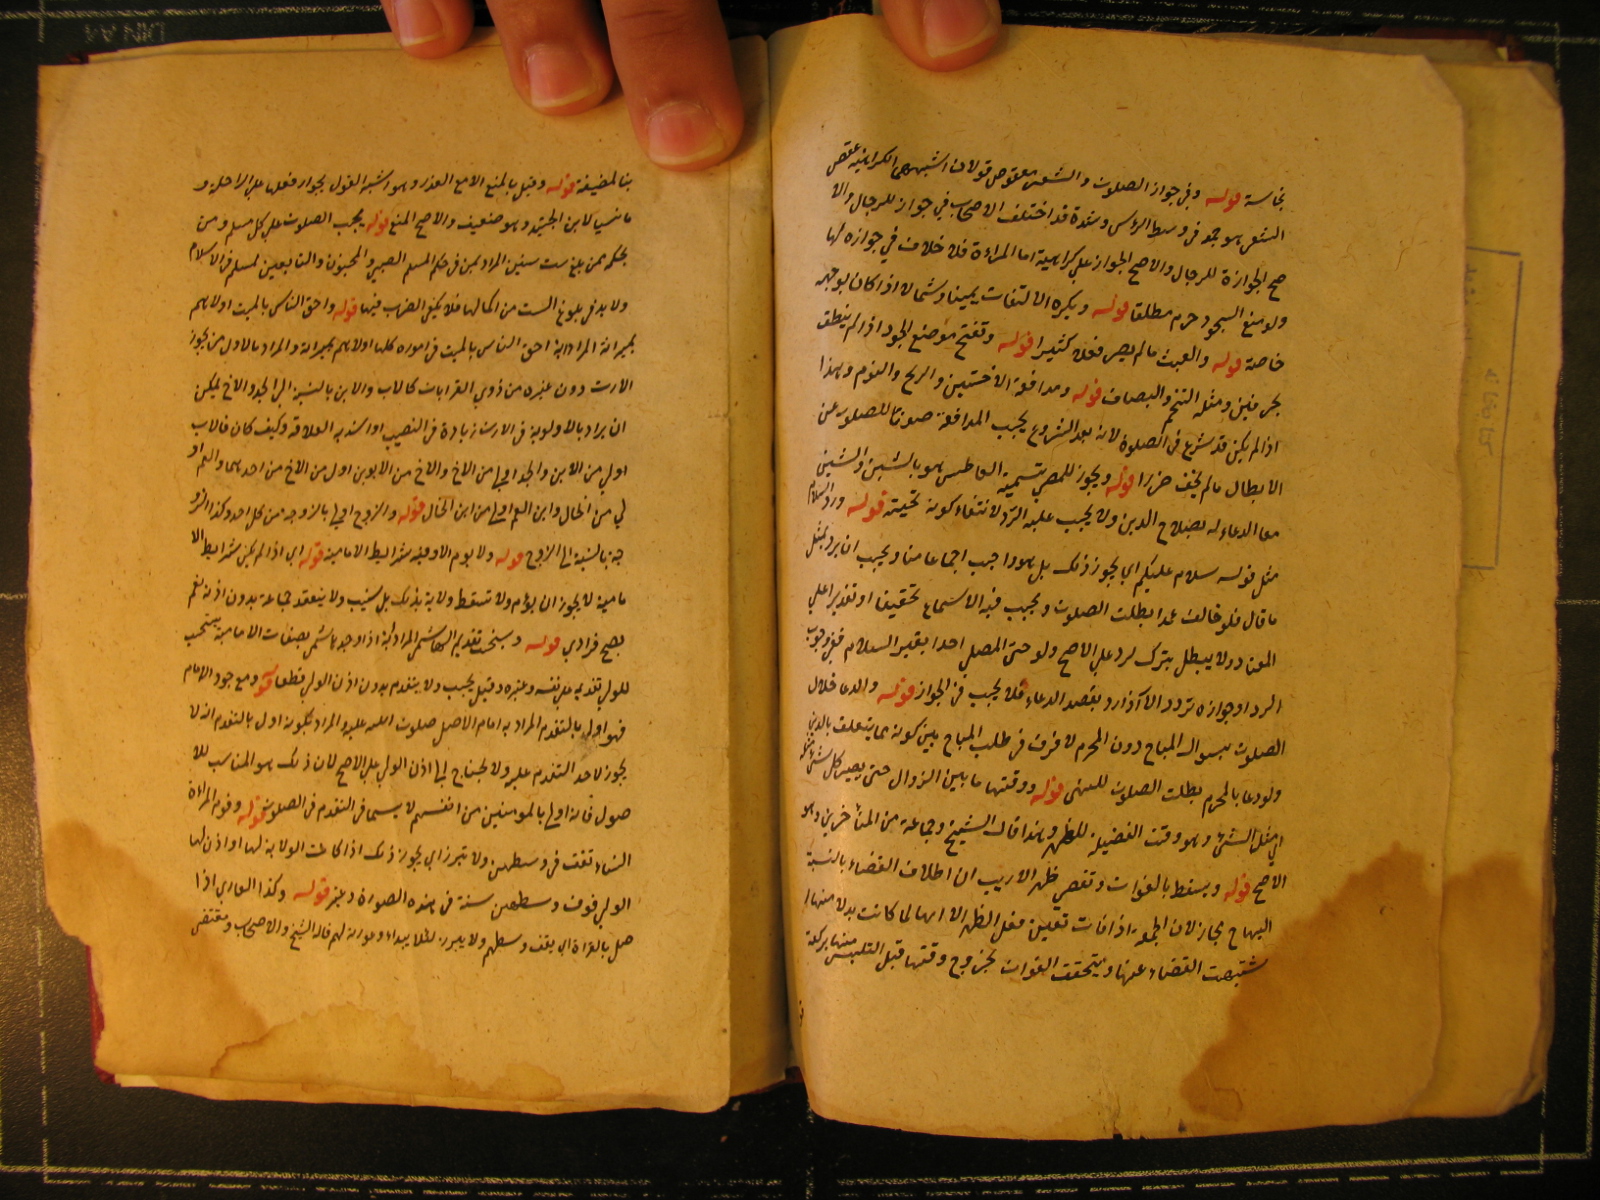 نجاسة قوله وفي جواز الصلوت والشعر معقوص قولان اشبههما الكراهية عقص
الشعر هو جمعه في وسط الرأس وشده قد اختلف الاصحاب في جوازه للرجال والا
صح الجوازة للرجال والاصح الجواز على كراهية اما المراءة فلا خلاف في جوازه لها
ولو منع السجود حرم مطلقا قوله ويكره الالتفات يمينا وشمالا اذا كان بوجهه
خاصة قوله والعبث مالم يصر فعلا كثيرا قوله وتفتح موضع السجود اذا لم ينطق
بحرفين ومثله التنخم والبصاق قوله ومدافعة الاخبثين والريح والنوم وهذا
اذا لم يكن قد شرع في الصلوة لانه بعد الشروع يجب المدافعة صونا للصلوت عن
الابطال مالم يخف ضررا قوله ويجوز للمصلي تسميت العاطس هو بالسين والشين
معا الدعاء له بصلاح الدين ولا يجب عليه الرد لانتفاء كونه تحيته قوله ورد السلام
مثل قوله سلام عليكم اي يجوز ذلك بل هو واجب اجماعا منا ويجب ان يرد بمثل
ما قال فلو خالف عمدا بطلت الصلوت ويجب فيه الاسماع تحقيقا او تقديرا على
المعتاد ولا يبطل بترك الرد على الاصح ولو حيى المصلي احد بغير السلام ففي وجوب
الرد او جوازه تردد الا اذا رد بقصد الدعاء فلا يجب في الجواز قوله والدعا خلال
الصلوت بسوال المباح دون المحرم لا فرق في طلب المباح بين كونه مما يتعلق بالدين
ولو دعا بالمحرم بطلت الصلوت للنهى قوله ووقتها ما بين الزوال حتى يصير كل شئ مثله
اي مثل الشئ وهو وقت الفضيلة للظهر وبهذا قال الشيخ وجماعة من المتاخرين وهو
الاصح قوله ويسقط بالفوات وتقضي ظهرا لاريب ان اطلاق القضاء بالنسبة
اليها مجاز لان الجمعة اذا فاتت تعين فعل الظهر الا انها لما كانت بدلا منها ا
شبهت القضاء عنها ويتحقق الفوات بخروج وقتها قبل التلبس منها بركعة
بنا لمضيفة قوله وقيل بالمنع الا مع العذر وهو اشبه القول بجواز فعلها على الراحلة و
ماشيا لابن الجنيد وهو ضعيف والاصح المنع قوله يجب الصلوت على كل مسلم ومن
بحكمه ممن بلغ ست سنين المراد بمن في حكم المسلم الصبي والمجنون والتابعين لمسلم في الاسلام
ولا بد في بلوغ الست من اكمالها فلا يكفي القرب فيها قوله واحق الناس بالميت اولاهم
بميراثه المراد انه احق الناس بالميت في اموره كلها اولاهم بميراثه والمراد بالاول من يحوز
الارث دون غيره من ذوي القرابات كالاب والابن بالنسبة الى الجد والاخ يمكن
ان يراد بالاولوية في الارث زيادة في النصيب او اشدية العلاقة وكيف كان فالاب
اولى من الابن والجد اولى من الاخ والاخ من الابوين اولى من الاخ من احدهما والعم او
لي من الخال وابن العم اولى من ابن الخال قوله والزوج اولى بالزوجة من كل احد وكذا الزو
جة بالنسبة الى الزوج قوله ولا يوم الا وفيه شرايط الامامية قوله اي اذا لم يكن شرايط الا
مامية لا يجوز ان يؤم ولا تسقط ولاية بذلك بل يستنيب ولا ينعقد جماعة بدون اذنه نعم
يصح فرادى قوله ويستحب تقديم الهاشمي المراد انه اذا وجد هاشمي بصفات الامامية يستحب
للولي تقديمه على نفسه وغيره وقيل يجب ولا يتقدم بدون اذن الولي قطعا قوله ومع وجود الامام
فهو اولى بالتقدم المراد به امام الاصل صلوت الله عليه والمراد بكونه اولى بالتقدم انه لا
يجوز لاحد التقدم عليه ولا يحتاج الى اذن الولي على الاصح لان ذلك هو المناسب للا
صول فانه اولى بالمومنين من انفسهم لا سيما في التقدم في الصلوت قوله وقوم المراءة
النساء تقف في وسطهن ولا تبرز اي يجوز ذلك اذا كانت الولاية لها او اذن لها
الولي فوقف وسطهن سنة في هذه الصلوة وغيرها قوله وكذا العاري اذا
صلى بالعراة اي يقف وسطهم ولا يبرز لئلا يبداء وعورته لهم قاله الشيخ والاصحاب ومقتضى